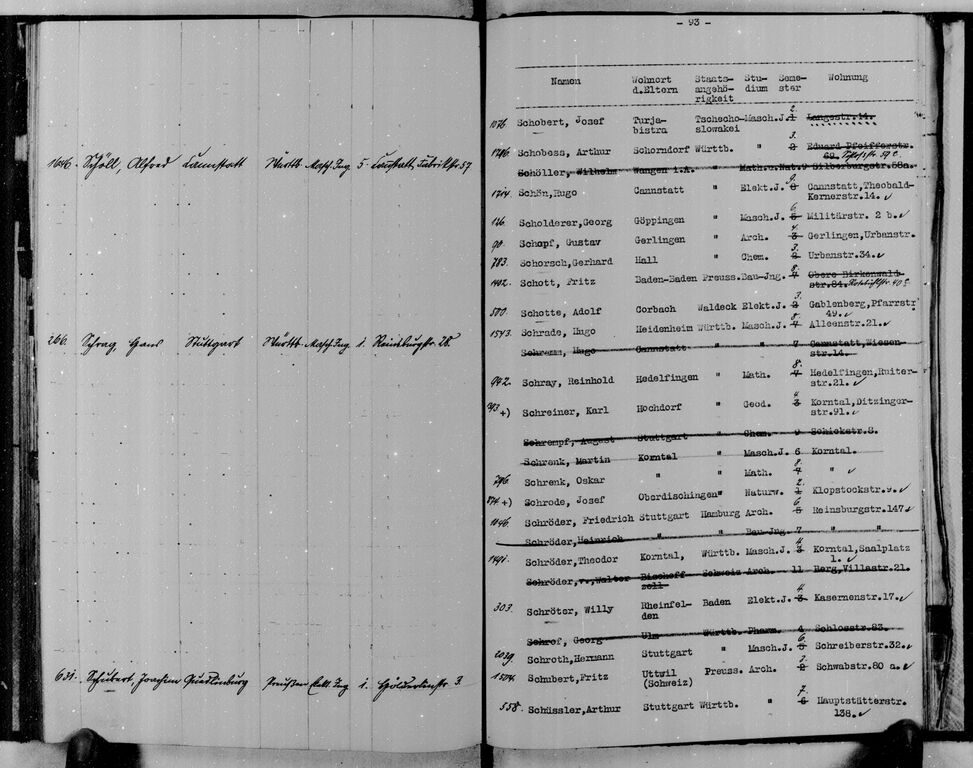 1646. Schöll, Alfred Cannstatt Württb. Masch.Ing. 5. Cannstatt, Fabrikstr. 57
266. Schrag, Hans Stuttgart Württb. Masch.Ing. 1. Reinsburgstr. 28.
631. Schubert, Joachim Quedlinburg Preußen Elekt. Ing 1. Hölderlinstr. 3.
- 93 -
Namen Wohnort Staats- Stu- Seme- Wohnung
d.Eltern angehö- dium ster
rigkeit
2.
1076. Schobert, Josef Turja- Tschecho- Masch.J. 1 Langestr.14.
bistra slowakei
3.
1746. Schobess, Arthur Schorndorf Württb. " 2 Eduard Pfeifferstr.
69.
Schöller, Wilhelm Wangen i.A. " Math.u.Nat.9 Silberburgstr.58a.
9.
1714. Schön,Hugo Cannstatt " Elekt.J. 8 Cannstatt,Theobald-
Kernerstr.14.
6.
126. Scholderer,Georg Göppingen " Masch.J. 5 Militärstr. 2 b.
4.
90. Schopf, Gustav Gerlingen " Arch. 3 Gerlingen,Urbanstr.
3.
783. Schorsch,Gerhard Hall " Chem. 2 Urbanstr.34.
8.
1402. Schott, Fritz Baden-Baden Preuss. Bau-Jng. 7 Obere Birkenwald-
str.84.
3.
500. Schotte, Adolf Corbach Waldeck Elekt.J. 2 Gablenberg,Pfarrstr
49.
8.
1543. Schrade, Hugo Heidenheim Württb. Masch.J. 7 Alleenstr.21.
Schramm, Hugo Cannstatt " " 7 Cannstatt,Wiesen-
str.14.
8.
942. Schray, Reinhold Hedelfingen " Math. 7 Hedelfingen,Ruiter-
str.21.
4.
+) Schreiner, Karl Hochdorf " Geod. 3 Korntal,Ditzinger-
str.91.
Schrempf, August Stuttgart " Chem. 9 Schickstr.8.
Schrenk, Martin Korntal " Masch.J. 6 Korntal.
8.
746. Schrenk, Oskar " " Math. 7 " "
2.
874. +) Schrode, Josef Oberdischingen " Naturw. 1 Klopstockstr.9.
6.
1046. Schröder, Friedrich Stuttgart Hamburg Arch. 5 Reinsburgstr.147
Schröder,Heinrich " " Bau-Jng. 7 " "
4.
1491. Schröder,Theodor Korntal, Württb. Masch.J. 3 Korntal,Saalplatz
1.
Schröder,v.,Walter Bischoff Schweiz Arch. 11 Berg,Villastr.21.
zell
4.
303. Schröter, Willy Rheinfel- Baden Elekt.J. 3 Kasernenstr.17.
den
Schrof, Georg Ulm Württb. Pharm. 4 Schlosstr.83.
6.
2039. Schroth,Hermann Stuttgart " Masch.J. 5 Schreiberstr.32.
3.
1504. Schubert,Fritz Uttwil Preuss. Arch. 2 Schwabstr.80 a.
(Schweiz)
7.
558. Schüssler,Arthur Stuttgart Württb. " 6 Hauptstätterstr.
138.